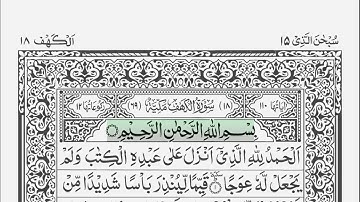 سُبْحٰنَ الَّذِيْ ١٥
اَلْكَهْف ١٨
اٰيَاتُهَا ١١٠ (١٨) سُوْرَةُ الْكَهْفِ مَكِّيَّةٌ (٦٩) رُكُوْعَاتُهَا ١٢
بِسْمِ اللّٰهِ الرَّحْمٰنِ الرَّحِيْمِ
اَلْحَمْدُ لِلّٰهِ الَّذِيْٓ اَنْزَلَ عَلٰى عَبْدِهِ الْكِتٰبَ وَلَمْ
يَجْعَلْ لَّهٗ عِوَجًا ۝ قَيِّمًا لِّيُنْذِرَ بَاْسًا شَدِيْدًا مِّنْ